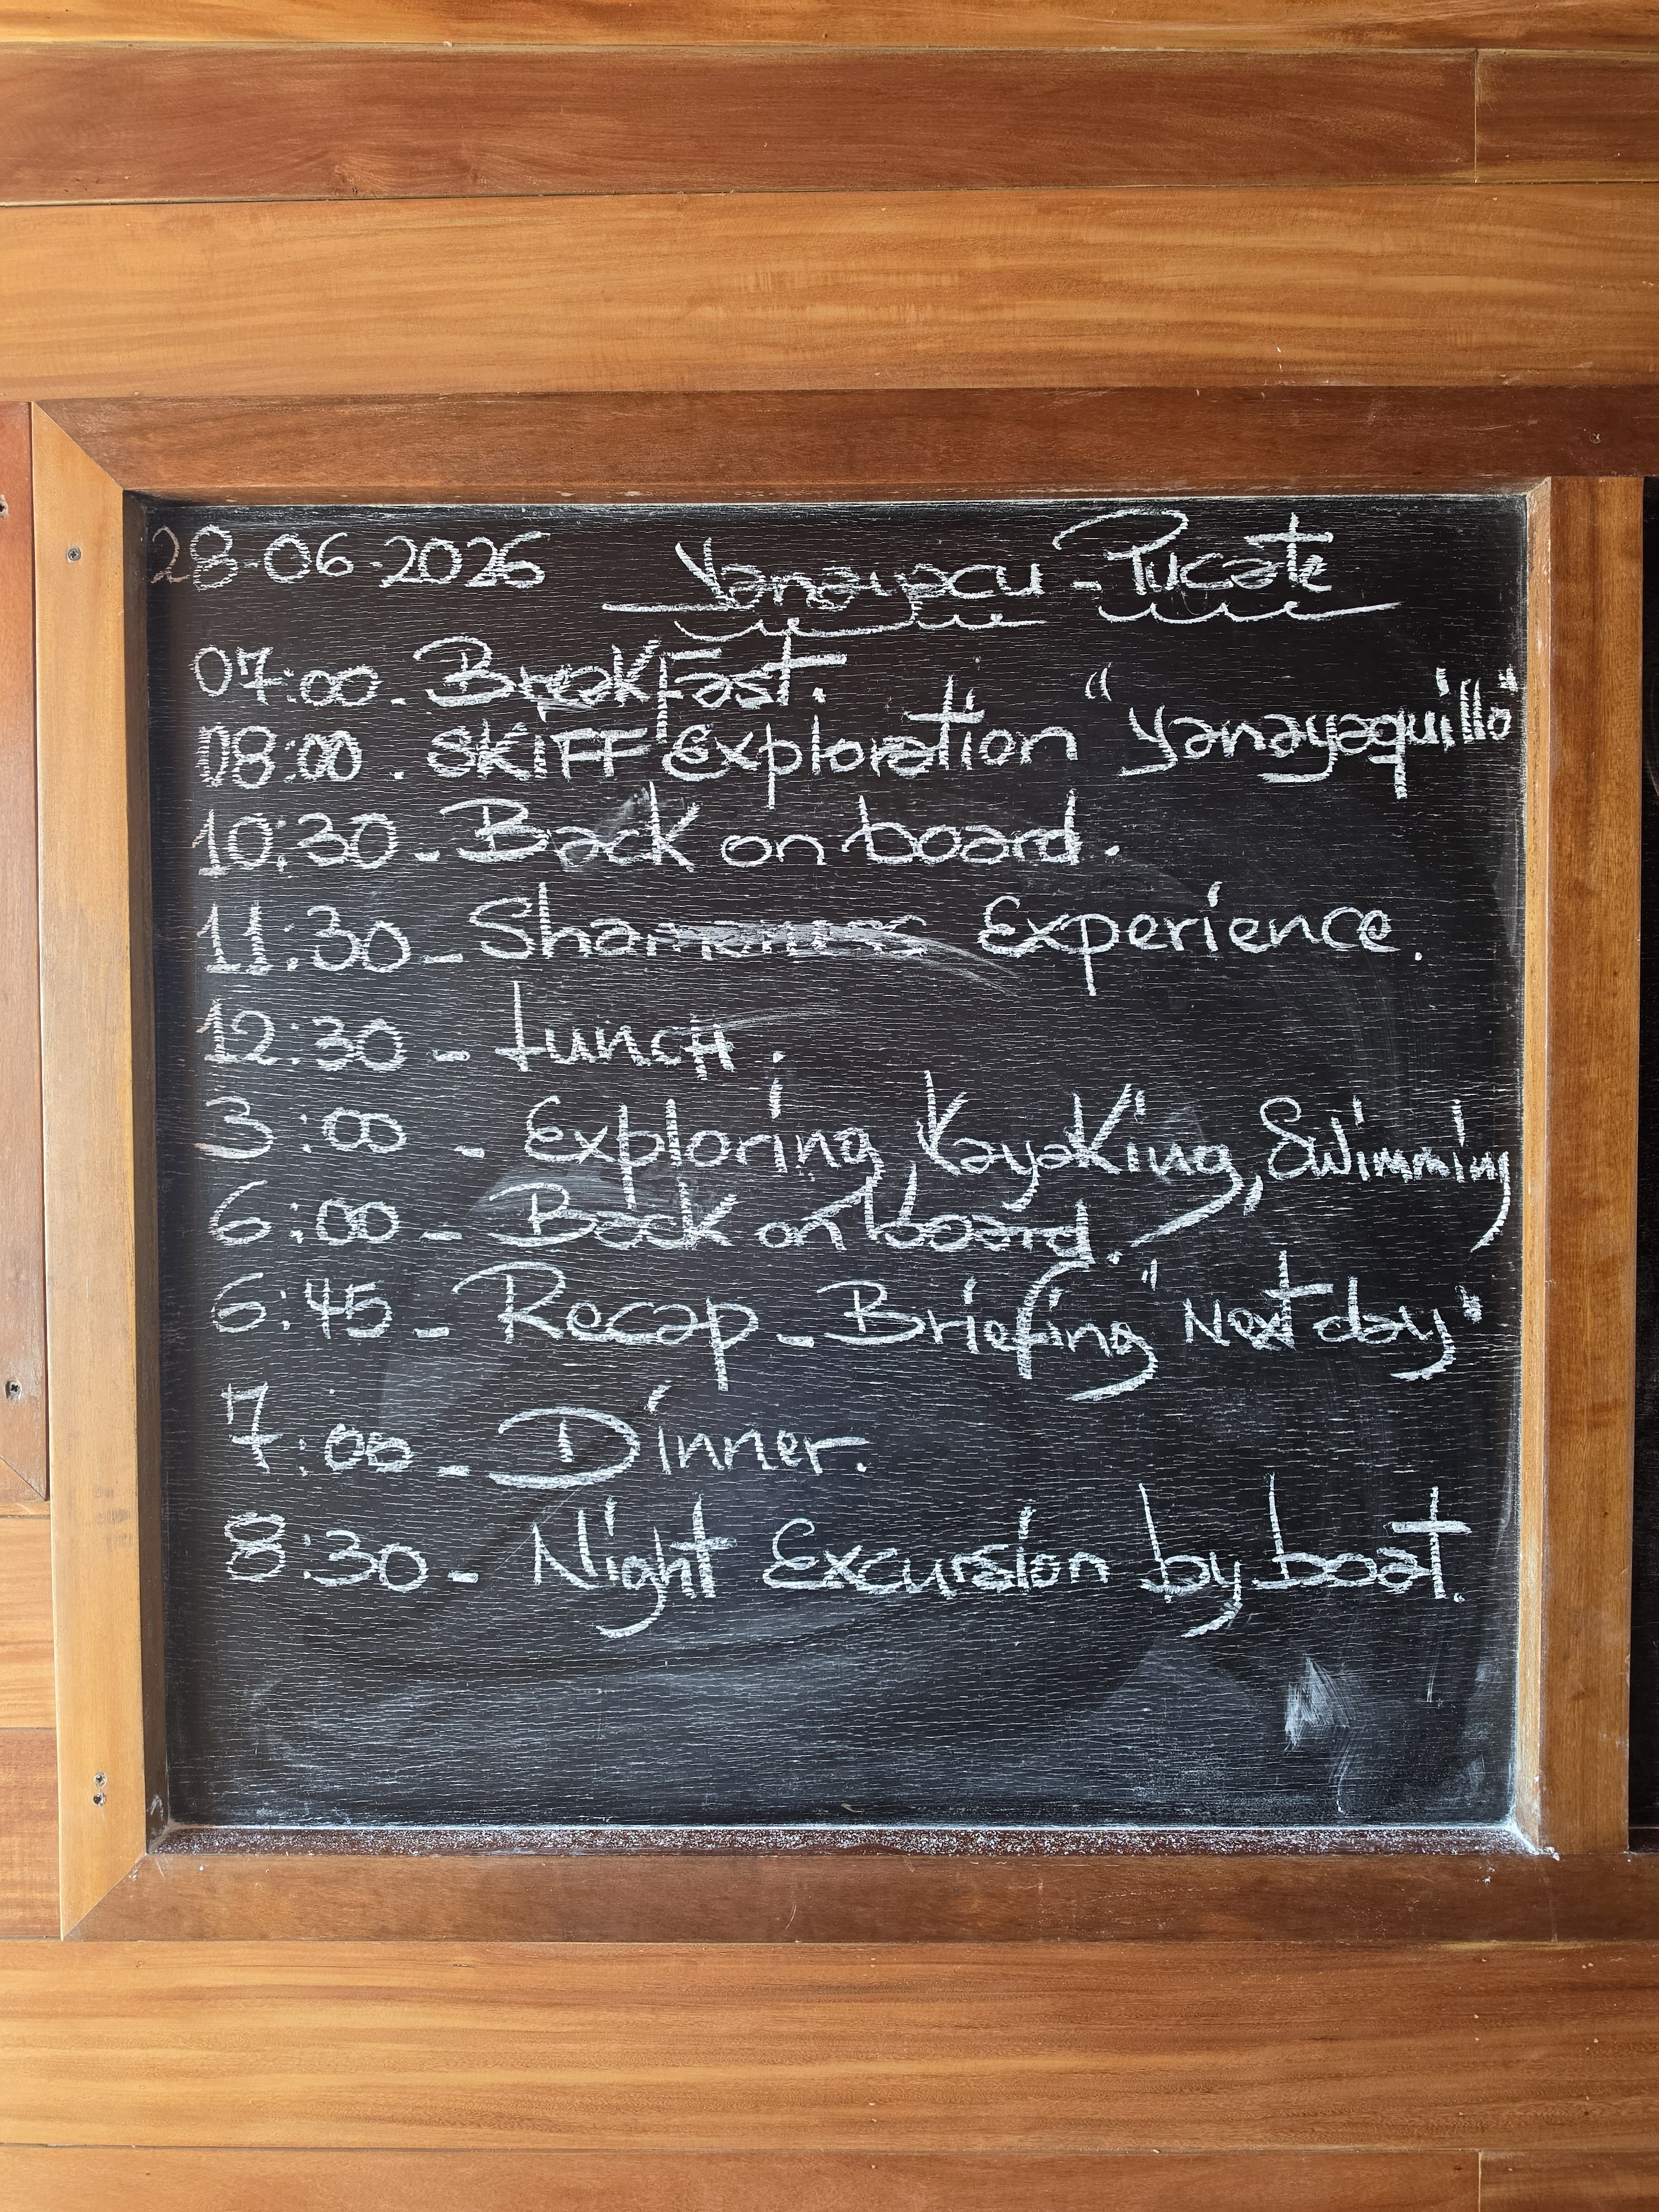 28-06-2026 Yanayacu - Pucate
07:00. BreakFast.
08:00. SKIFF Exploration "Yanayaquillo"
10:30 - Back on board.
11:30 - Experience.
12:30 - Lunch.
3:00 - Exploring, Kayaking, Swimming
6:00 - Back on board.
6:45 - Recap - Briefing "Next day"
7:00 - Dinner.
8:30 - Night Excursion by boat.